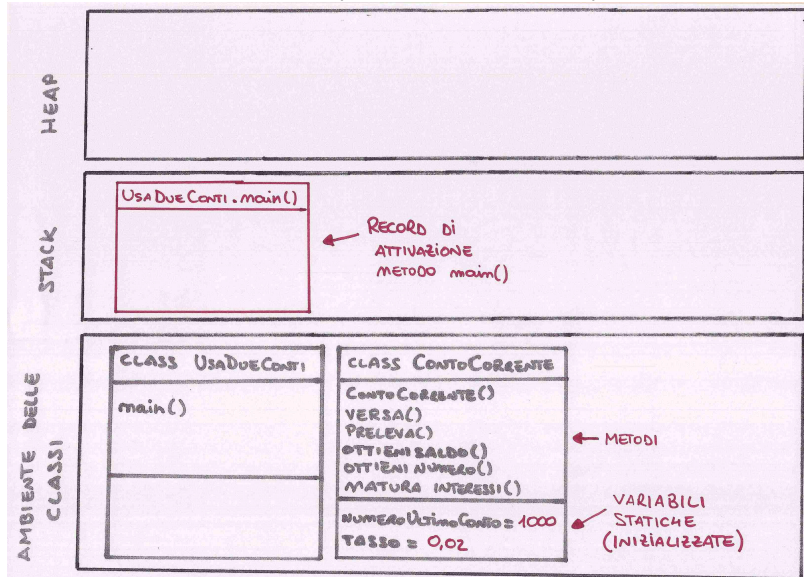 HEAP
STACK
UsaDueConti.main()
RECORD DI
ATTIVAZIONE
METODO main()
AMBIENTE DELLE
CLASSI
CLASS UsaDueConti
main()
CLASS ContoCorrente
ContoCorrente()
VERSA()
PRELEVA()
OTTIENI SALDO()
OTTIENI NUMERO()
MATURA INTERESSI()
METODI
NUMERO ULTIMO CONTO = 1000
TASSO = 0,02
VARIABILI
STATICHE
(INIZIALIZZATE)